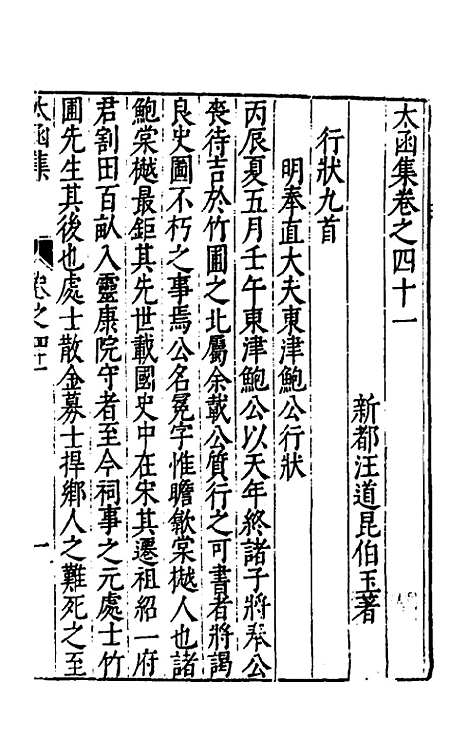 太函集卷之四十一
新都汪道昆伯玉著
行狀九首
明奉直大夫東津鮑公行狀
丙辰夏五月壬午東津鮑公以天年終諸子將奉公
喪待吉於竹圃之北屬余載公質行之可書者將謁
良史圖不朽之事焉公名冕字惟瞻歙棠樾人也諸
鮑棠樾最鉅其先世載國史中在宋其遷祖紹一府
君割田百畝入靈康院守者至今祠事之元處士竹
圃先生其後也處士散金募士捍鄉人之難死之至
太函集
卷之四十一
一